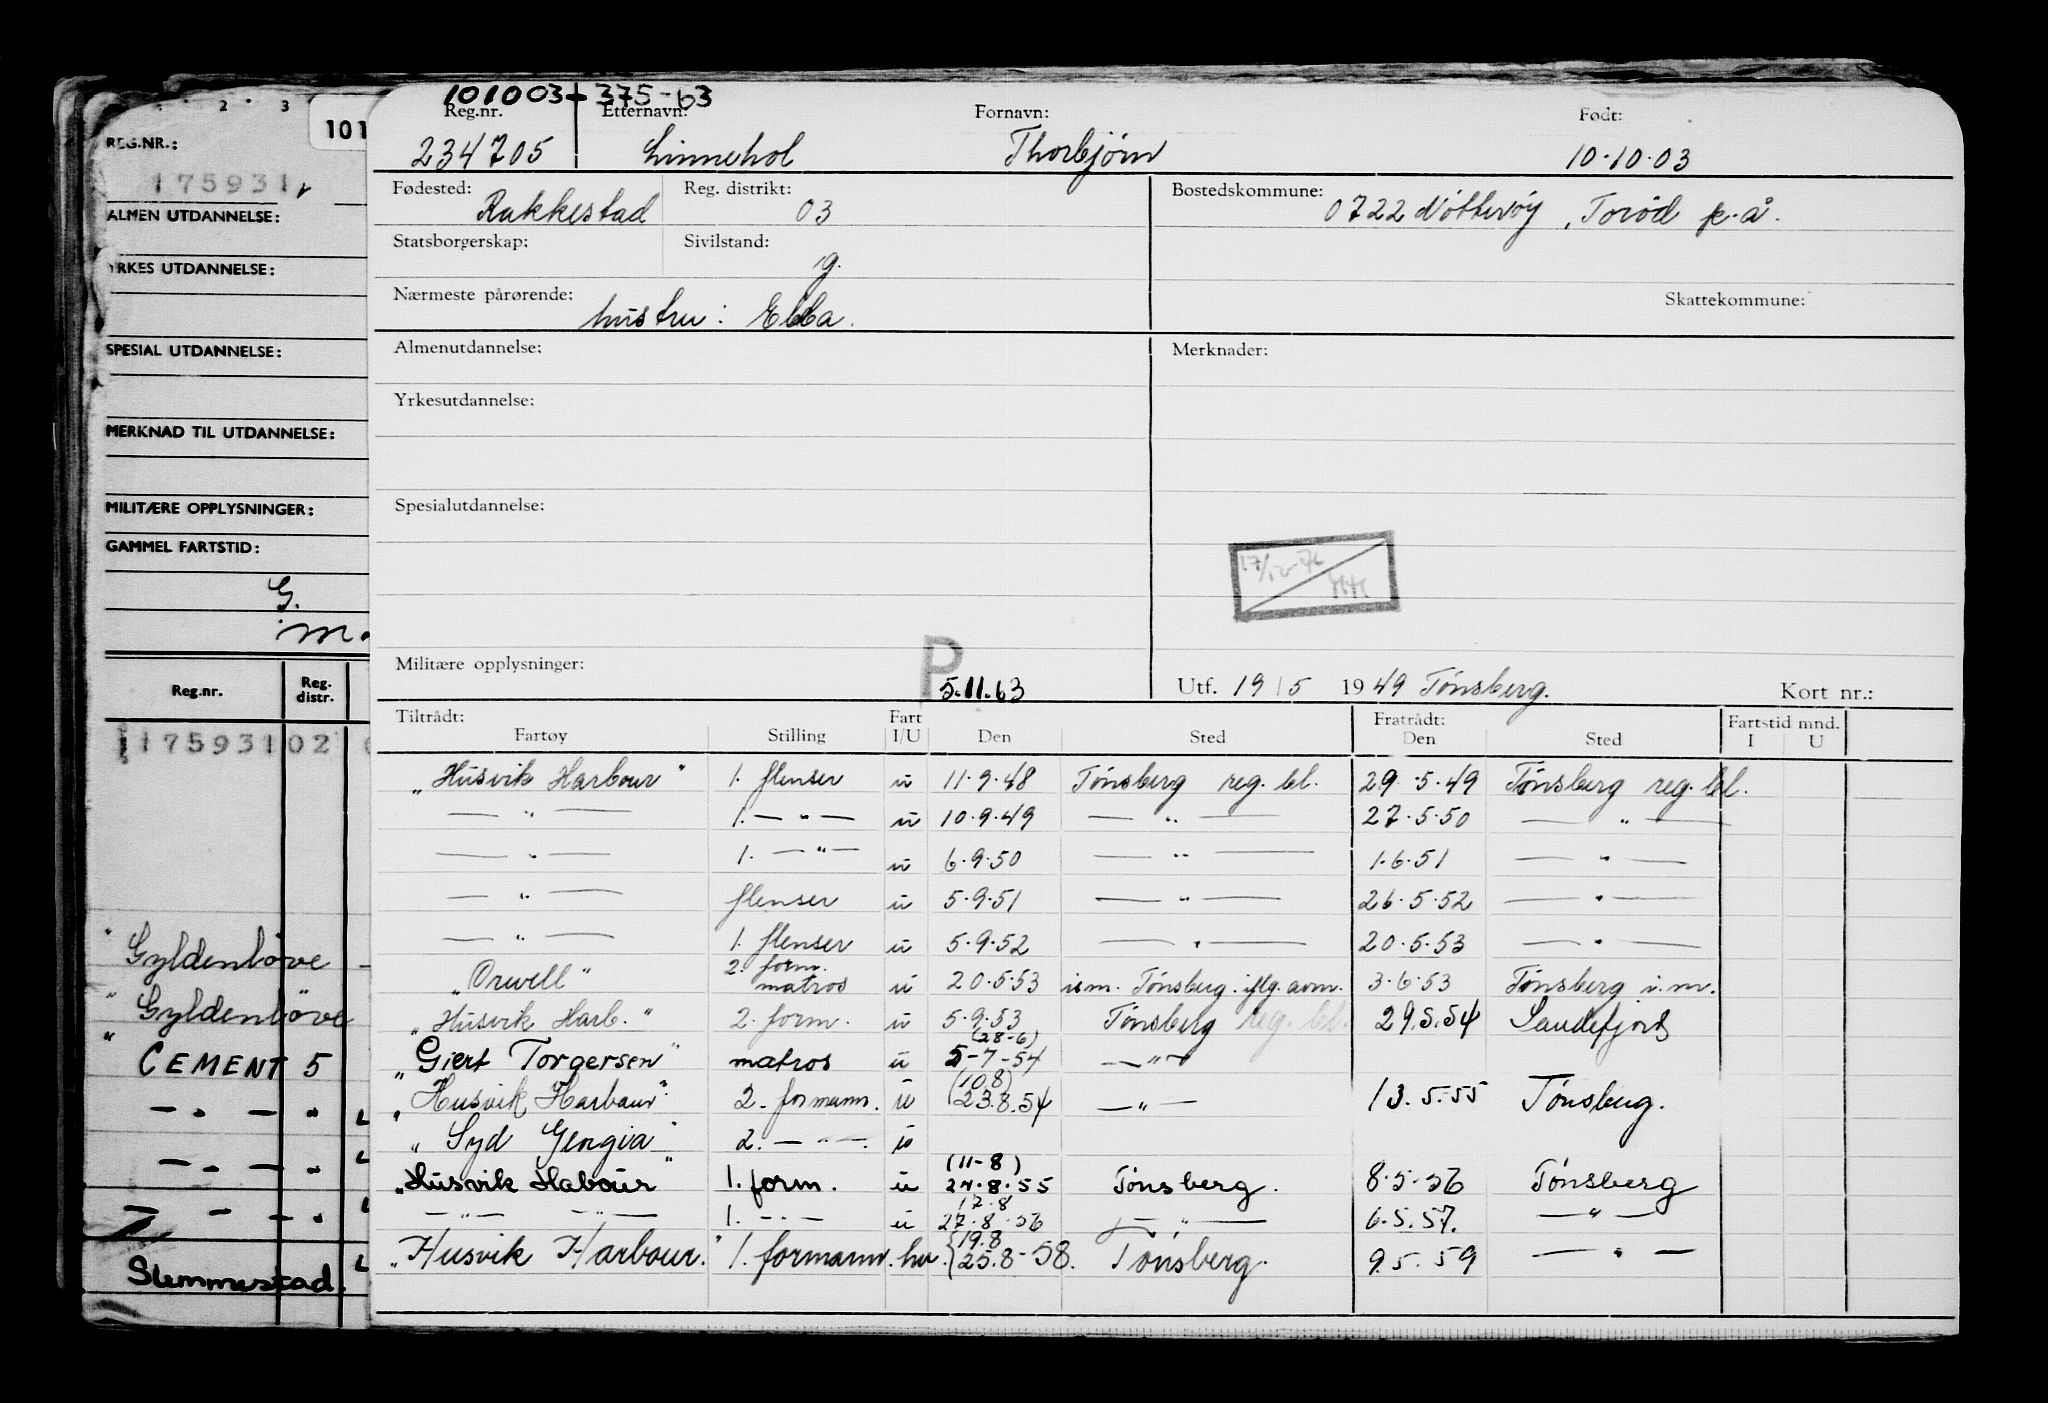 2 3
101
REG.NR.:
175931
ALMEN UTDANNELSE:
YRKES UTDANNELSE:
SPESIAL UTDANNELSE:
MERKNAD TIL UTDANNELSE:
MILITÆRE OPPLYSNINGER:
GAMMEL FARTSTID:
G.
m.
Reg.nr. Reg. distr.
175931 02
"Gyldenløve
"Gyldenløve
"CEMENT 5
— " — "
— " — "
— " — "
Slemmestad.
101003 - 375-63
Reg.nr. Etternavn: Fornavn: Født:
234705 Linnehol Thorbjørn 10.10.03
Fødested: Reg. distrikt: Bostedskommune:
Rakkestad 03 0722 Nøtterøy, Torød p.å.
Statsborgerskap: Sivilstand:
g.
Nærmeste pårørende: Skattekommune:
hustru: Ebba.
Almenutdannelse: Merknader:
Yrkesutdannelse:
Spesialutdannelse:
17/12-76
Militære opplysninger: P
5.11.63 Utf. 19/5 1949 Tønsberg. Kort nr.:
Tiltrådt: Fart Fratrådt: Fartstid mnd.
Fartøy Stilling I/U Den Sted Den Sted I U
"Husvik Harbour" 1. flenser u 11.9.48 Tønsberg reg. bl. 29.5.49 Tønsberg reg. bl.
— " — 1. — " — u 10.9.49 — " — 27.5.50 — " —
— " — 1. — " — u 6.9.50 — " — 1.6.51 — " —
— " — flenser u 5.9.51 — " — 26.5.52 — " —
— " — 1. flenser u 5.9.52 — " — 20.5.53 — " —
"Orwell" 2. form. matros u 20.5.53 ism. Tønsberg. iflg. avm. 3.6.53 Tønsberg i.m.
"Husvik Harb." 2. form. u 5.9.53 Tønsberg reg. bl. 29.5.54 Sandefjord
(28-6)
"Giert Torgersen" matros u 5-7-54 — " —
(10.8)
"Husvik Harbour" 2. formann. u (23.8.54 — " — 13.5.55 Tønsberg.
"Syd Georgia" 2. — " — u
(11-8)
"Husvik Habour" 1. form. u 24.8.55 Tønsberg. 8.5.56 Tønsberg
17.8
— " — — " — 1. — " — u 27.8.56 — " — 6.5.57. — " —
19.8
"Husvik Harbour." 1. formann. hv. 25.8-58. Tønsberg. 9.5.59 — " —